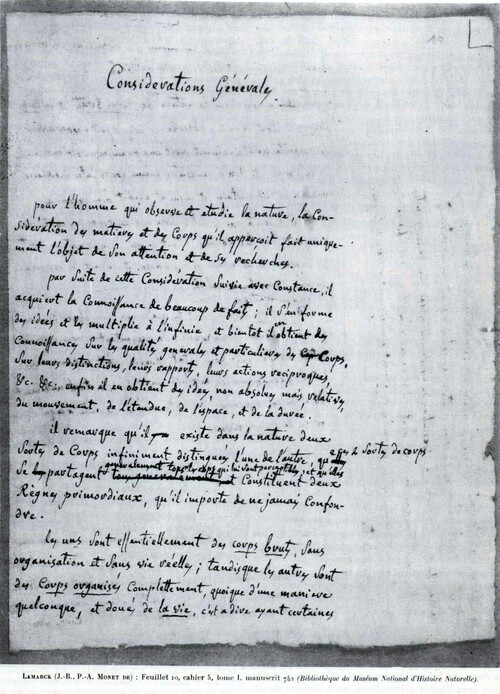 Considerations Générales.
pour l'homme qui observe et etudie la nature, la con-
sidération des matieres et des corps qu'il apperçoit fait unique-
ment l'objet de son attention et de ses récherches.
par suite de cette Considération suivie avec Constance, il
acquiert la Connoissance de beaucoup de faits; il s'en forme
des idées et les multiplie à l'infinie, et bientot il en obtient des
connoissances sur les qualités generales et particulieres des Corps,
sur leurs distinctions, leurs rapports, leurs actions reciproques,
&c. &c., enfin il en obtient des idées, non absolues mais relatives,
du mouvement, de l'étendue, de l'espace, et de la durée.
il remarque qu'il existe dans la nature deux
sortes de Corps infiniment distingues l'une de l'autre, que ces 2 sortes de corps
se partagent generalement tous les corps qui lui sont perceptibles, et qu'elles
constituent deux
Règnes primordiaux, qu'il importe de ne jamais confon-
dre.
les uns sont essentiellement des corps bruts, sans
organisation et sans vie réelles; tandisque les autres sont
des Corps organisés Complettement, quoique d'une maniere
quelconque, et doués de la vie, c'est a dire ayant certaines
LAMARCK (J.-B., P.-A. MONET DE) : Feuillet 10, cahier 5, tome I, manuscrit 742 (Bibliothèque du Muséum National d'Histoire Naturelle).